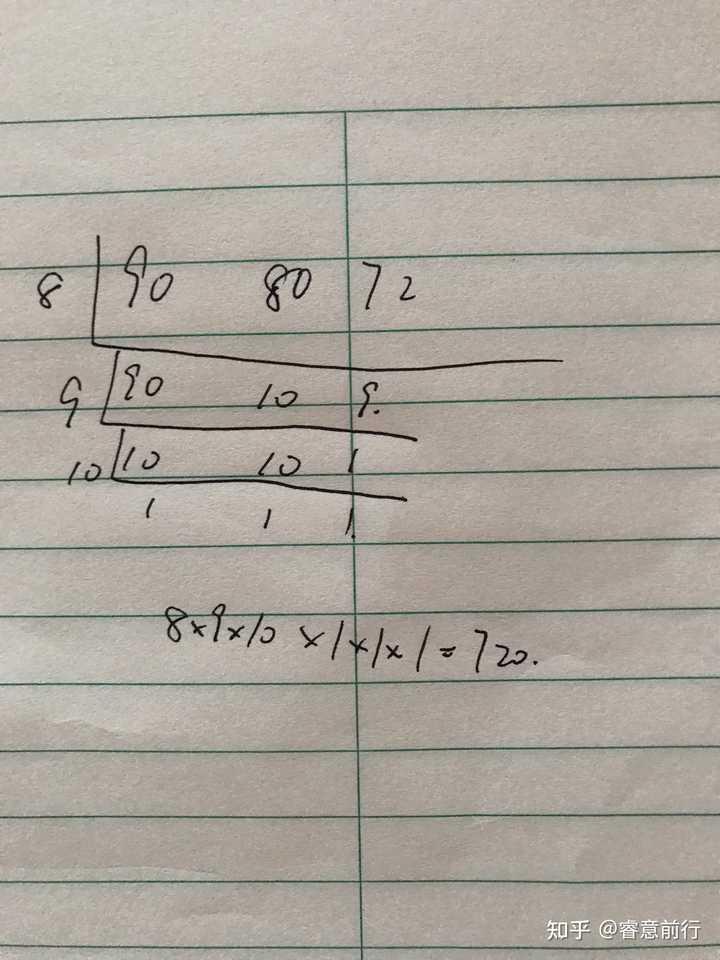 8 90 80 72
9 90 10 9.
10 10 10 1
1 1 1.
8×9×10 ×1×1×1=720.
知乎 @睿意前行